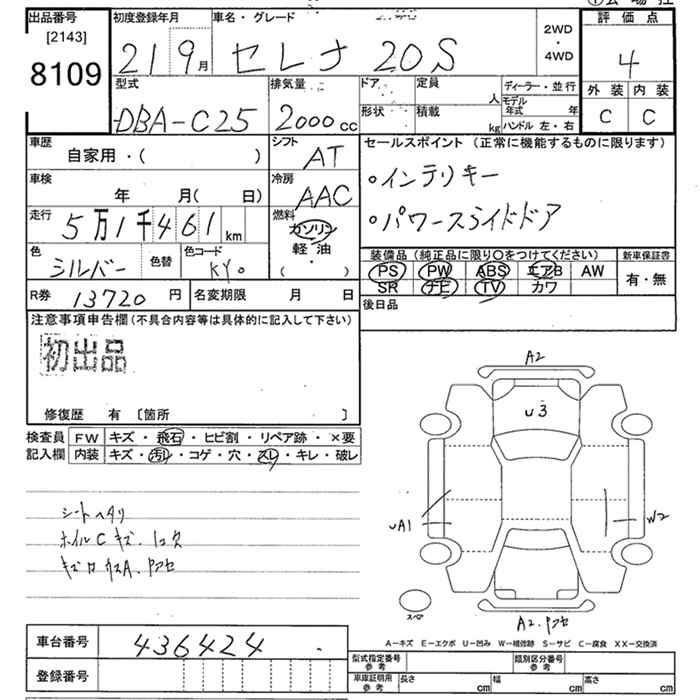 出品番号
[2143]
8109
初度登録年月
21 9月
車名・グレード
セレナ 20S
2WD
・
4WD
評価点
4
外装 内装
C C
型式
DBA-C25
排気量
2000cc
ドア
形状
定員
人
積載
kg
ディーラー・並行
モデル年式 年
ハンドル 左・右
車歴
自家用・( )
シフト
AT
車検
年 月( 日)
冷房
AAC
走行
5万1千461km
燃料
ガソリン
軽・油
( ・ )
色
シルバー
色替
色コード
KY0
R券 13720円
名変期限 月 日
セールスポイント (正常に機能するものに限ります)
○インテリキー
○パワースライドドア
装備品(純正品に限り○をつけてください)
PS PW ABS エアB AW
SR ナビ TV カワ
新車保証書
有・無
後日品
注意事項申告欄(不具合内容等は具体的に記入して下さい)
初出品
修復歴 有 [箇所 ]
検査員記入欄
FW キズ・飛石・ヒビ割・リペア跡・×要
内装 キズ・汚レ・コゲ・穴・スレ・キレ・破レ
シートヘタリ
ホイルCキズ.
A2
U3
UA1
W2
スペア
A2.
A−キズ E−エクボ U−凹み W−補修跡 S−サビ C−腐食 XX−交換済
車台番号 436424
登録番号
型式指定番号参考
類別区分番号参考
車庫証明用参考
長さ cm
幅 cm
高さ cm